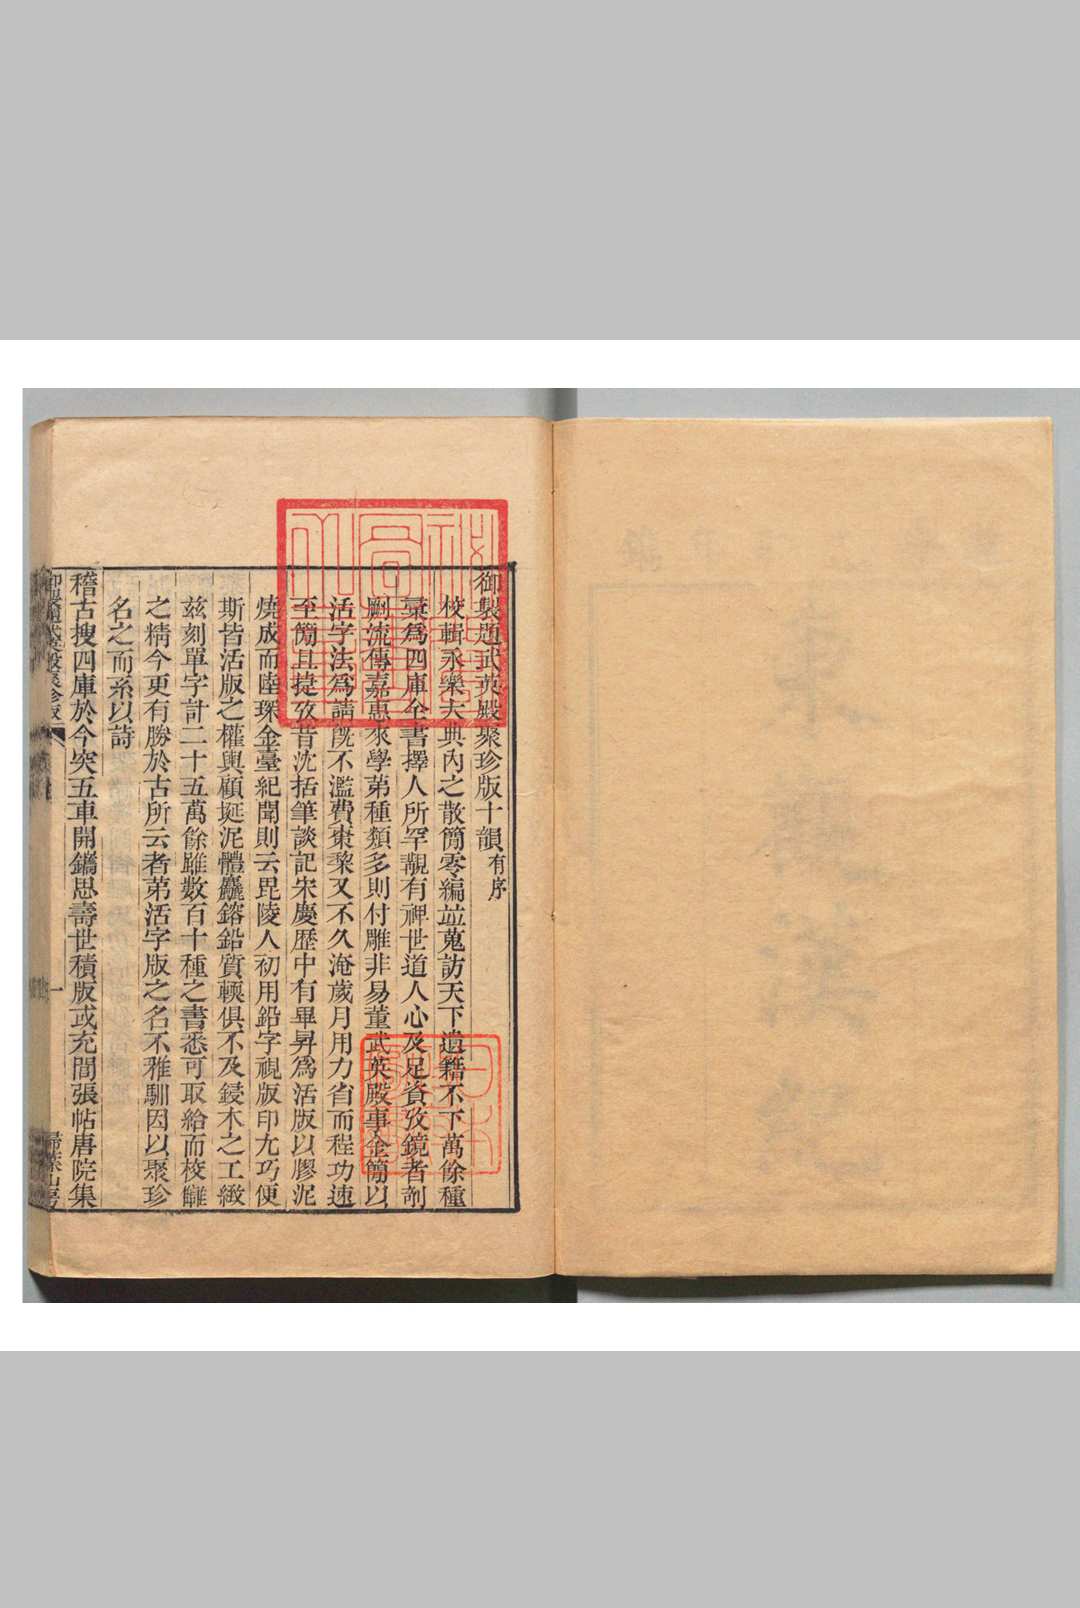 御製題武英殿聚珍版十韻有序
校輯永樂大典內之散簡零編並蒐訪天下遺籍不下萬餘種
彙為四庫全書擇人所罕覯有裨世道人心及足資攷鏡者剞
劂流傳嘉惠來學第種類多則付雕非易董武英殿事金簡以
活字法為請旣不濫費棗棃又不久淹歲月用力省而程功速
至簡且捷攷昔沈括筆談記宋慶歷中有畢昇為活版以膠泥
燒成而陸琛金臺紀聞則云毘陵人初用鉛字視版印尤巧便
斯皆活版之權輿顧埏泥體麤鎔鉛質輭俱不及鋟木之工緻
茲刻單字計二十五萬餘雖數百十種之書悉可取給而校讎
之精今更有勝於古所云者第活字版之名不雅馴因以聚珍
名之而系以詩
稽古搜四庫於今突五車開鐫思壽世積版或充閭張帖唐院集
御製題武英殿聚珍版
一